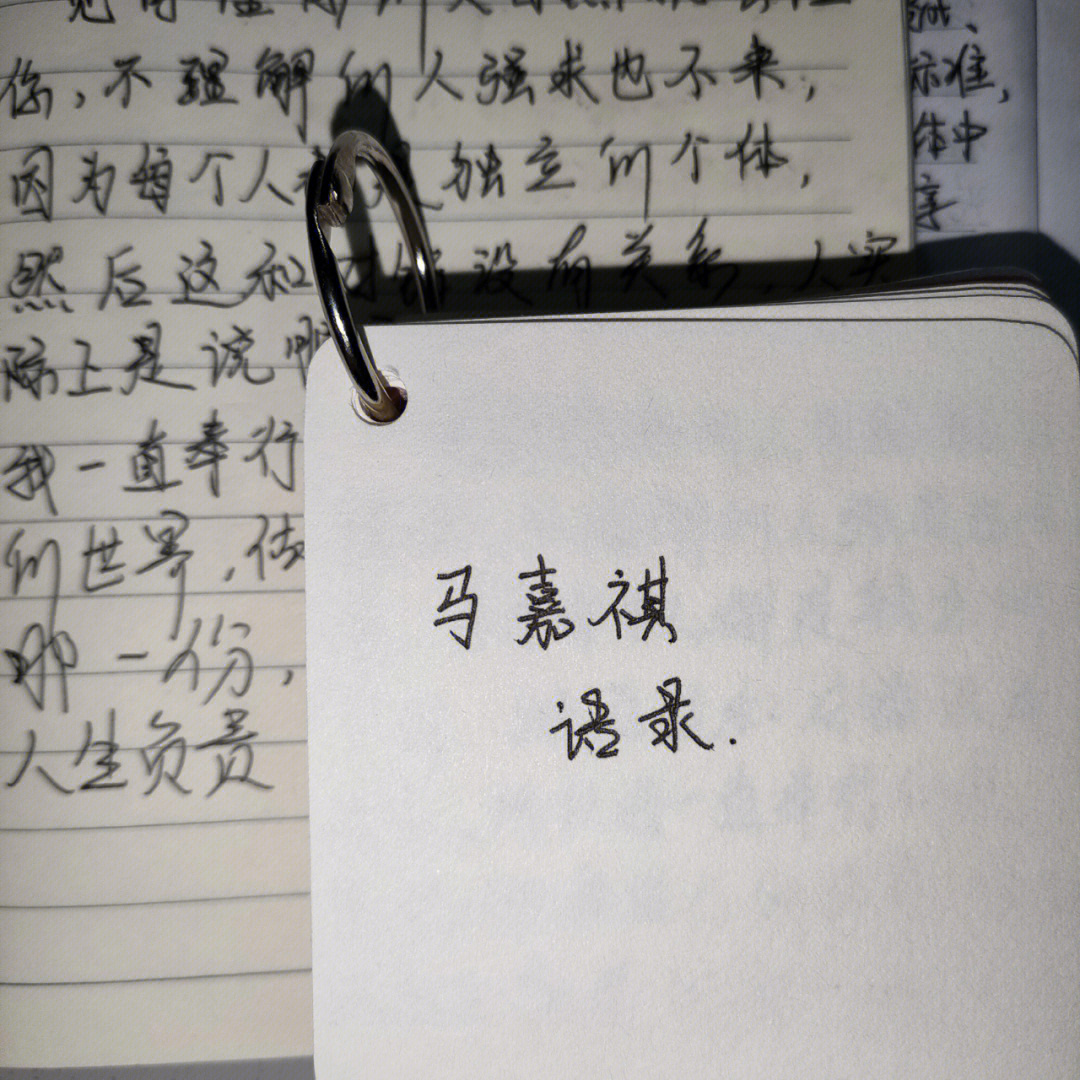 你,不理解的人强求也不来,
因为每个人 独立的个体,
然后这和 没有关系,人实
际上是说
我一直奉行
的世界,做
哪一份,
人生负责
标准,
体中
马嘉祺
语录.